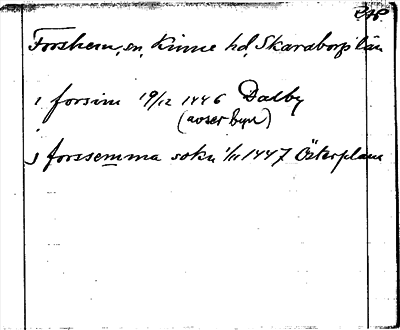 Forshem, sn, Kinne hd, Skaraborgs län
i forsim 19/12 1446 Dalby
(avser byn)
j forssemma sokn 1/11 1447 Österplana